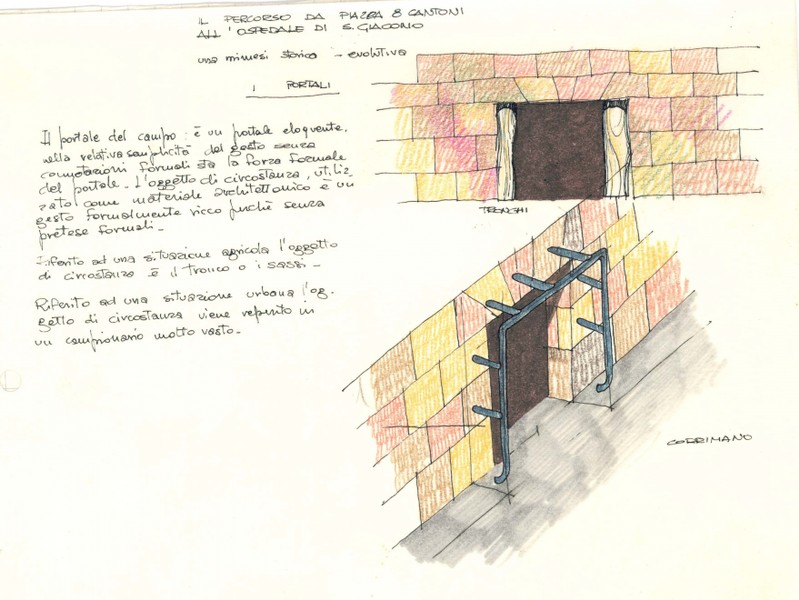 IL PERCORSO DA PIAZZA 8 CANTONI
ALL'OSPEDALE DI S. GIACOMO
una mimesi storico - evolutiva
I PORTALI
Il portale del campo: è un portale eloquente,
nella relativa semplicità del gesto senza
connotazioni formali sta la forza formale
del portale - L'oggetto di circostanza, utiliz
zato come materiale architettonico è un
gesto formalmente ricco perchè senza
pretese formali -
Riferito ad una situazione agricola l'oggetto
di circostanza è il tronco o i sassi -
Riferito ad una situazione urbana l'og-
getto di circostanza viene reperito in
un campionario molto vasto -
TRONCHI
CORRIMANO